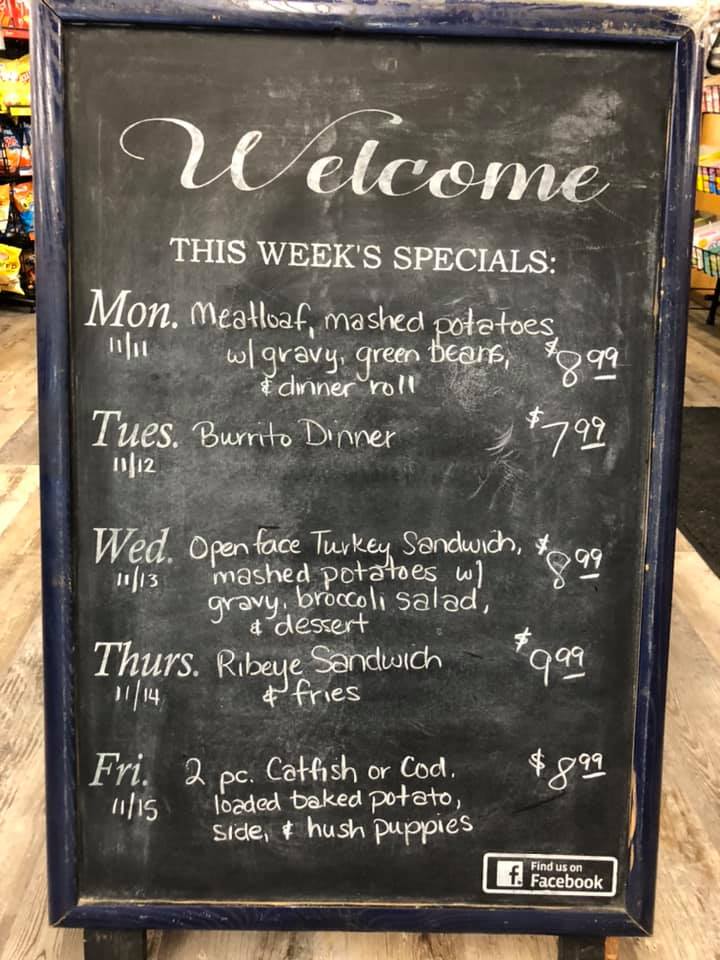 Welcome
THIS WEEK'S SPECIALS:
Mon. Meatloaf, mashed potatoes
11/11 w/ gravy, green beans, $8.99
& dinner roll
Tues. Burrito Dinner $7.99
11/12
Wed. Open face Turkey Sandwich, $8.99
11/13 mashed potatoes w/
gravy, broccoli salad,
& dessert
Thurs. Ribeye Sandwich $9.99
11/14 & fries
Fri. 2 pc. Catfish or Cod. $8.99
11/15 loaded baked potato,
side, & hush puppies
f Find us on
Facebook